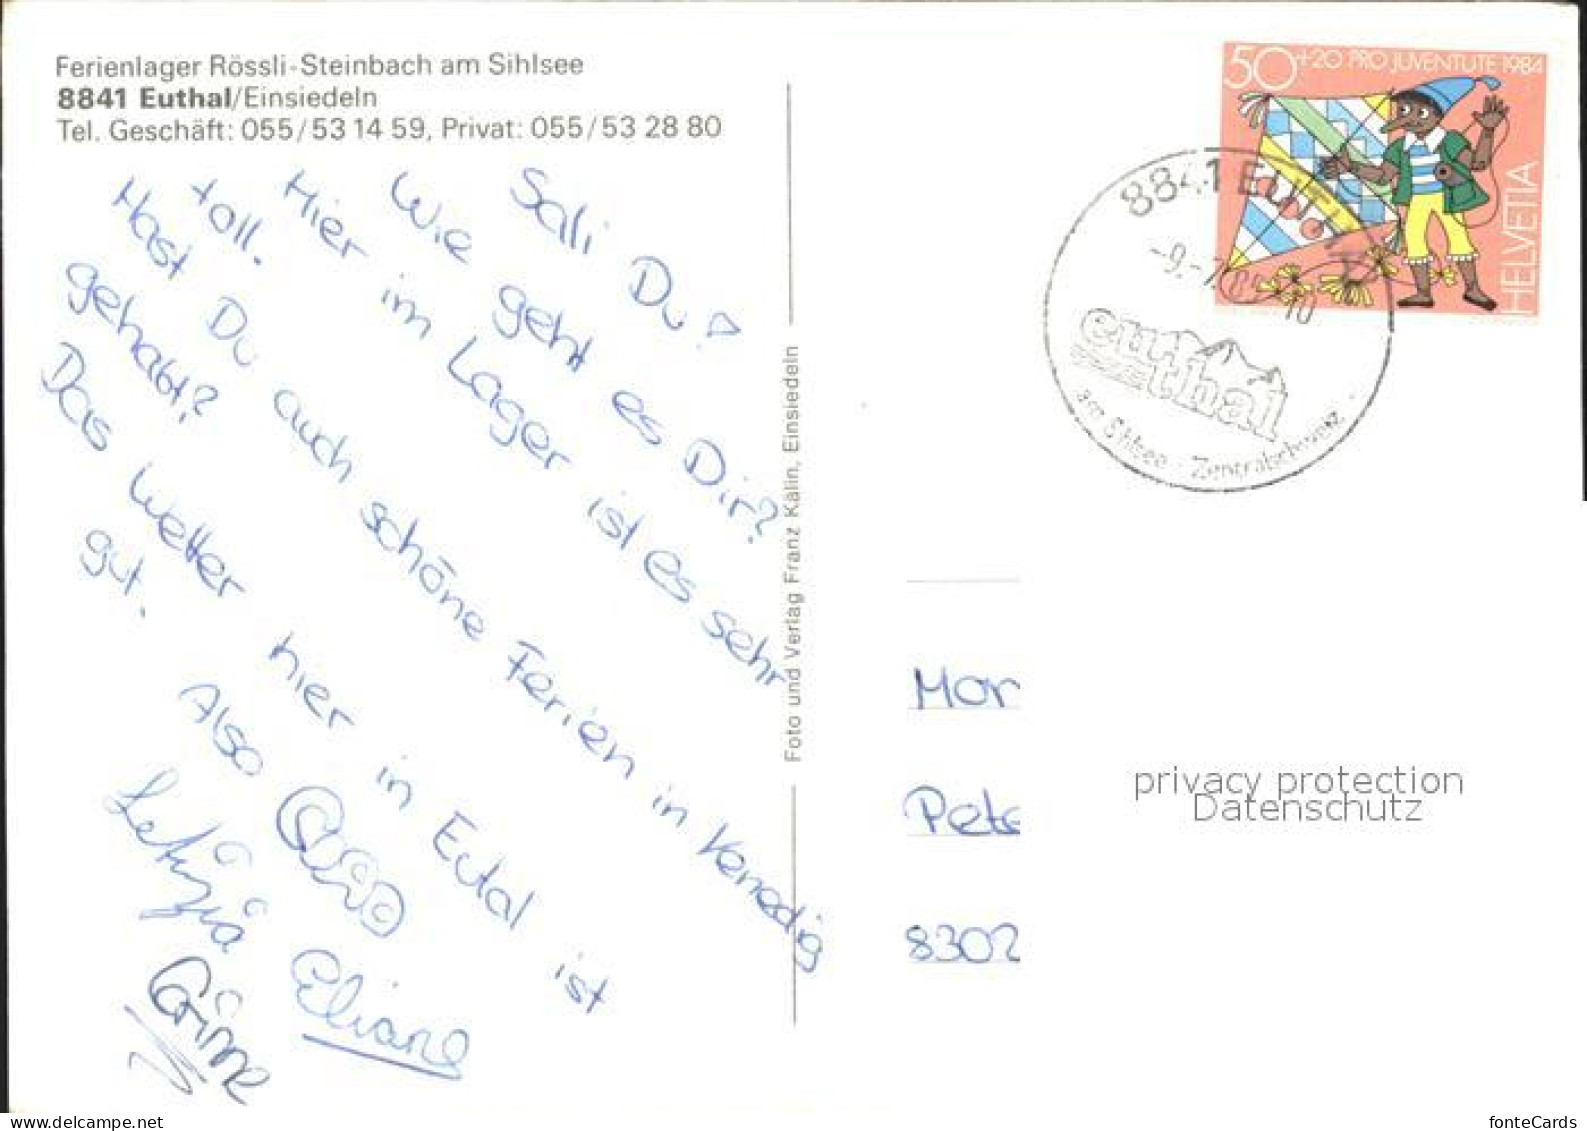 Ferienlager Rössli-Steinbach am Sihlsee
8841 Euthal/Einsiedeln
Tel. Geschäft: 055/53 14 59, Privat: 055/53 28 80
Sali Du?
Wie geht es Dir?
Hier im Lager ist es sehr
toll.
Hast Du auch schöne Ferien in Venedig
gehabt?
Das Wetter hier in Eutal ist
gut.
Also
Letizia
Eliane
Corinne
Foto und Verlag Franz Kälin, Einsiedeln
50+20 PRO JUVENTUTE 1984
HELVETIA
8841 EUTHAL
-9.-7.85-10
euthal
am Sihlsee · Zentralschweiz
Mor
Pete
8302
privacy protection
Datenschutz
www.delcampe.net
fonteCards